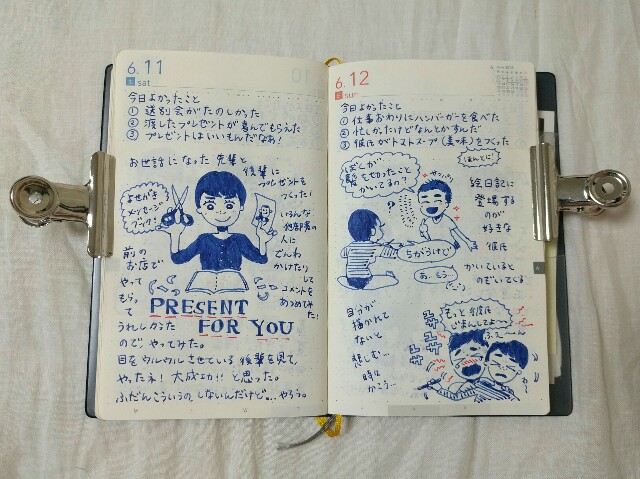 6. 11
土 sat
今日よかったこと
① 送別会がたのしかった
② 渡したプレゼントが喜んでもらえた
③ プレゼントはいいもんだなあ!
お世話になった先輩と
後輩に
プレゼントを
つくった!
よせがき
メッセージ
ブック!
いろんな
他部署の
人に
でんわ
かけたり
して
コメントを
あつめてみた!
前の
お店で
やって
もらっ
て
うれしかった
PRESENT
FOR YOU
のでやってみた。
目をウルウルさせている後輩を見て、
やったネ!大成功!!と思った。
ふだんこういうのしないんだけど…やろう。
6. 12
日 sun
今日よかったこと
① 仕事おわりにハンバーガーを食べた
② 忙しかったけどなんとかすんだ
③ 彼氏がトマトスープ(美味)をつくった
ほんとに!
ぼくが
髪ともむすたこと
かいてるの?
サッパリ
?
絵日記に
登場する
のが
好きな
彼氏
ちがうけど
あ、もう
かいていると
のぞいている
自分が
描かれて
ないと
悲しむ…
時には
かこう…
もっと彼氏
じまんしてよっ
ふえーん